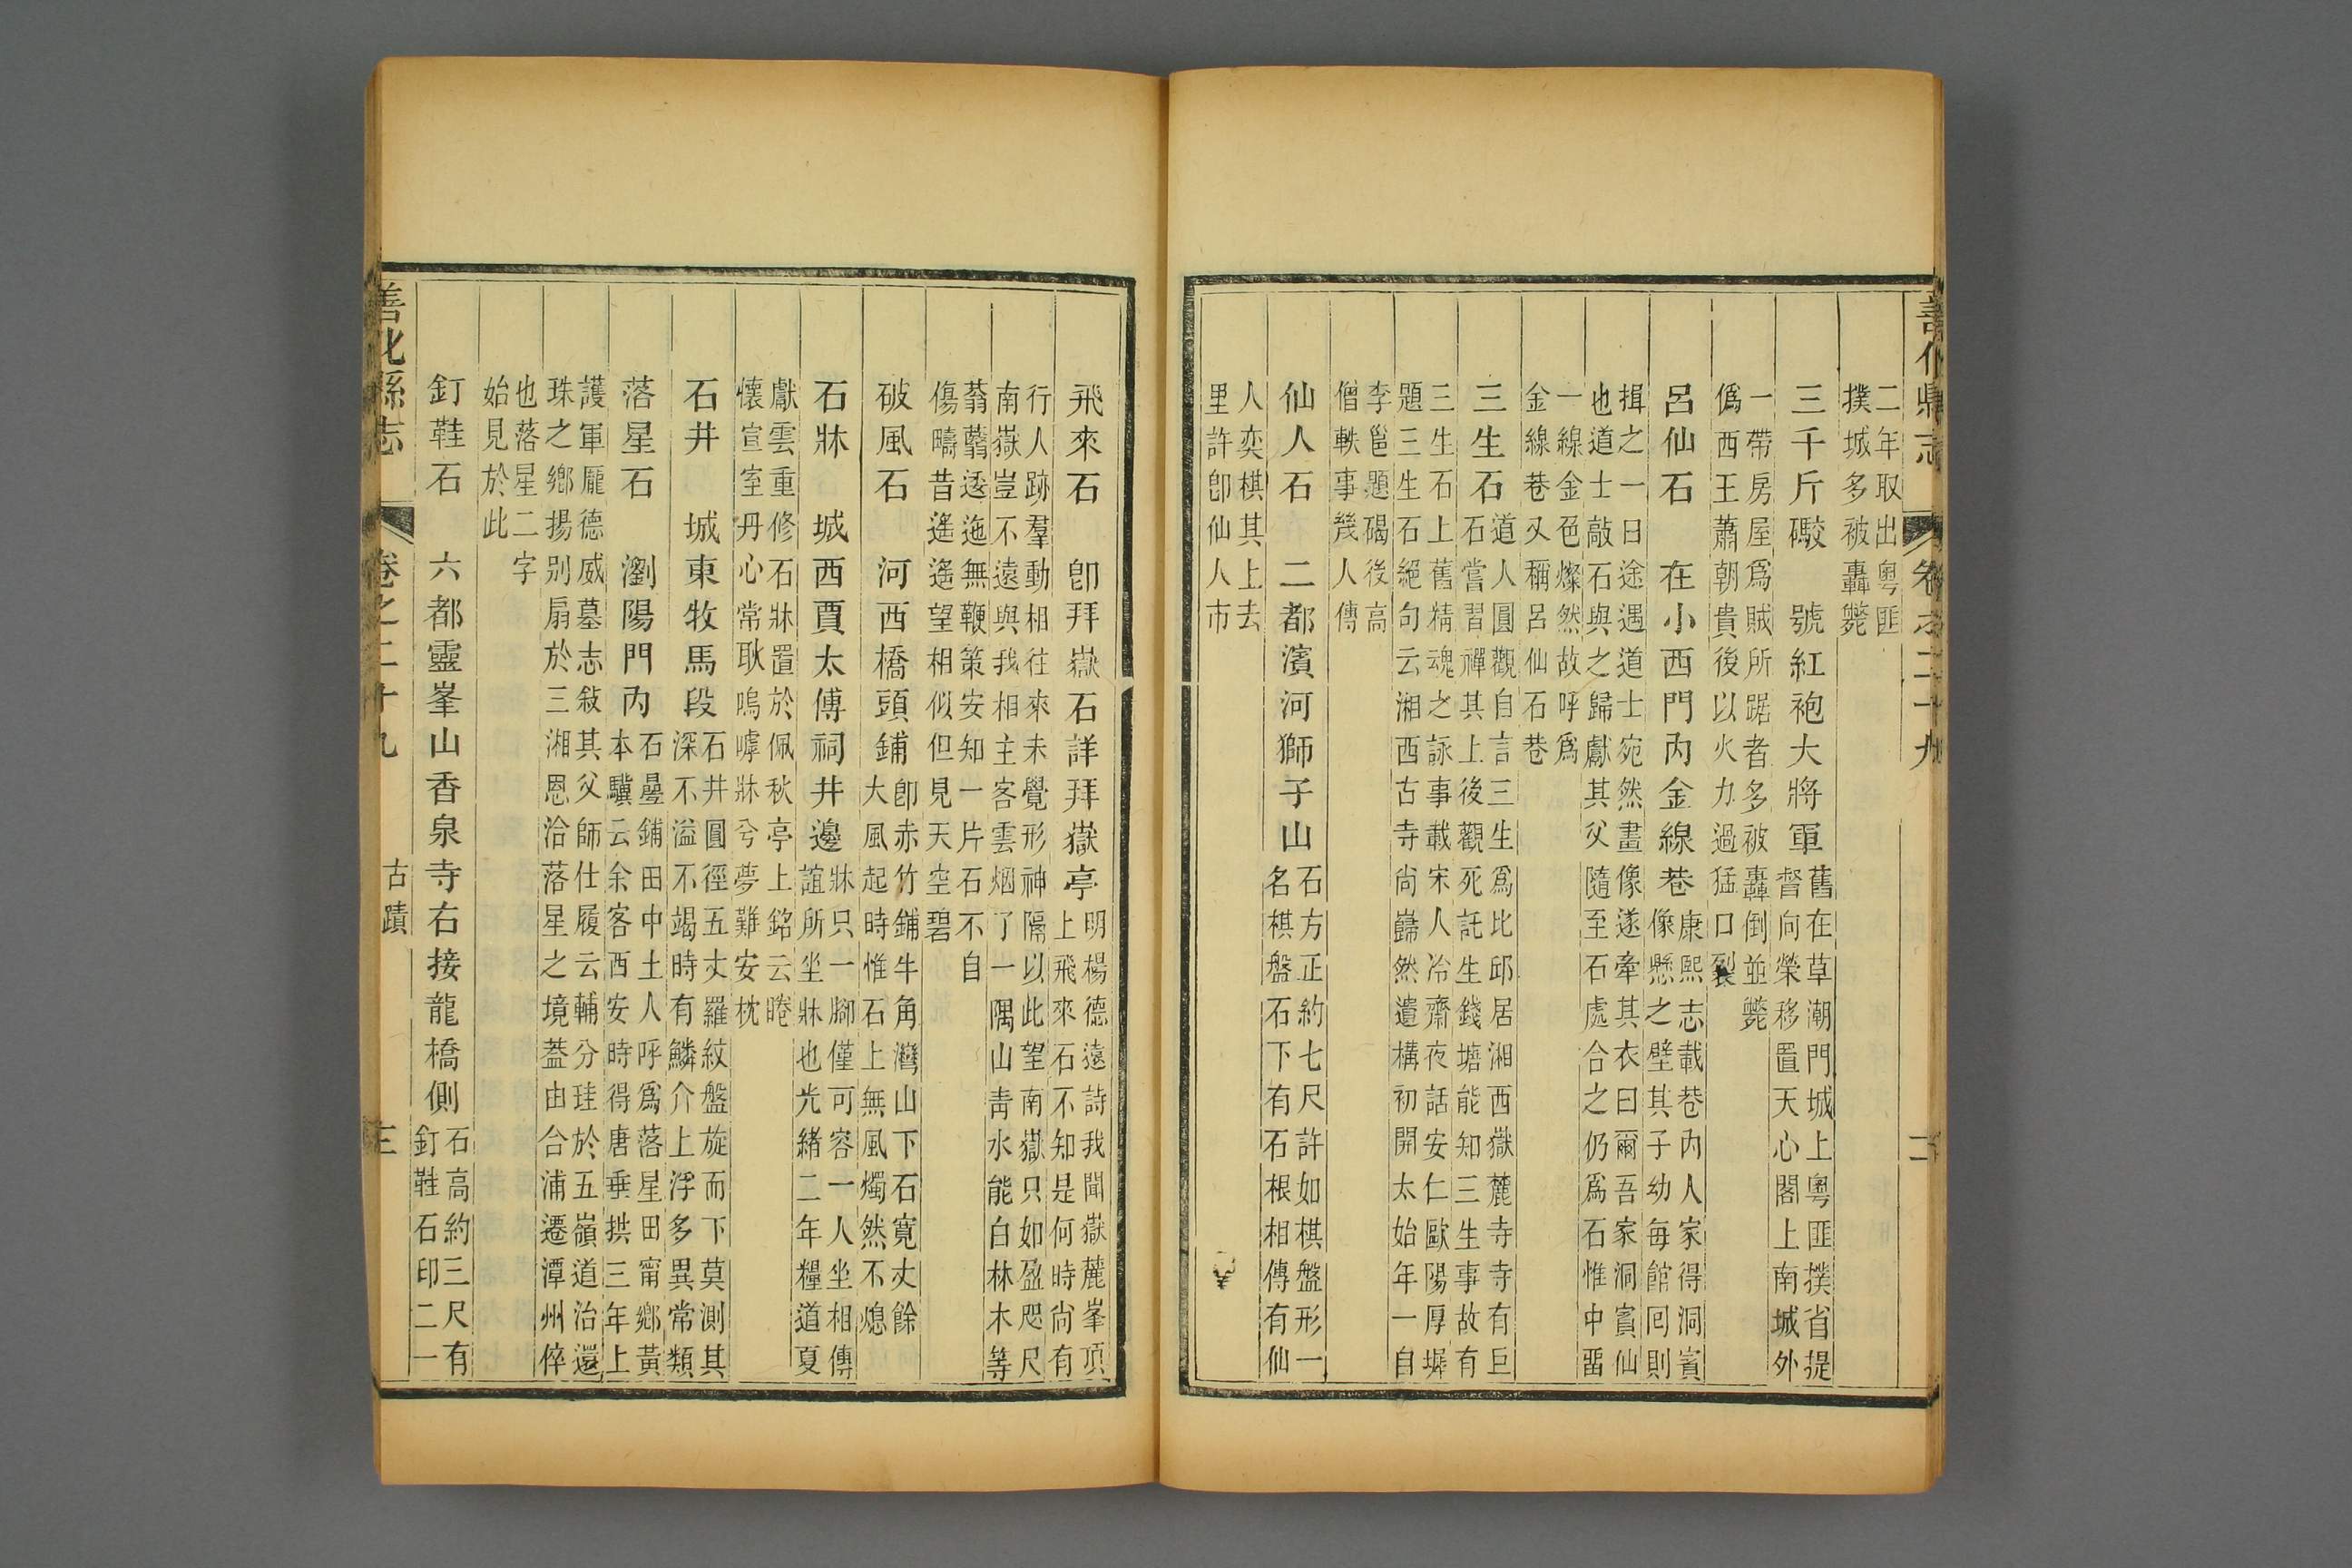 善化縣志
卷之二十九
二
二年取出粵匪
撲城多被轟斃
三千斤礮　號紅袍大將軍
舊在草潮門城上粵匪撲省提
督向榮移置天心閣上南城外
一帶房屋爲賊所踞者多被轟倒並斃
僞西王蕭朝貴後以火力過猛口裂
呂仙石　在小西門內金線巷
康熙志載巷內人家得洞賓
像懸之壁其子幼每館回則
揖之一日途遇道士宛然畫像遂牽其衣曰爾吾家洞賓仙
也道士敲石與之歸獻其父隨至石處合之仍爲石惟中畱
一線金色燦然故呼爲
金線巷又稱呂仙石巷
三生石
道人圓觀自言三生爲比邱居湘西嶽麓寺寺有巨
石嘗習禪其上後觀死託生錢塘能知三生事故有
三生石上舊精魂之詠事載宋人冷齋夜話安仁歐陽厚墀
題三生石絕句云湘西古寺尙巋然遺構初開太始年一自
李邕題碣後高
僧軼事幾人傳
仙人石　二都濱河獅子山
石方正約七尺許如棋盤形一
名棋盤石下有石根相傳有仙
人奕棋其上去
里許卽仙人市
飛來石　卽拜嶽石詳拜嶽亭
明楊德遠詩我聞嶽麓峯頂
上飛來石不知是何時尙有
行人跡羣動相往來未覺形神隔以此望南嶽只如盈咫尺
南嶽豈不遠與我相主客雲烟了一隅山靑水能白林木等
蓊蘙逶迤無鞭策安知一片石不自
傷疇昔遙遙望相似但見天空碧
破風石　河西橋頭鋪
卽赤竹鋪牛角灣山下石寬丈餘
大風起時惟石上無風燭然不熄
石牀　城西賈太傅祠井邊
牀只一腳僅可容一人坐相傳
誼所坐牀也光緖二年糧道夏
獻雲重修石牀置於佩秋亭上銘云睠
懷宣室丹心常耿嗚嘑牀兮夢難安枕
石井　城東牧馬段
石井圓徑五丈羅紋盤旋而下莫測其
深不溢不竭時有鱗介上浮多異常類
落星石　瀏陽門內
石壘鋪田中土人呼爲落星田甯鄉黃
本驥云余客西安時得唐垂拱三年上
護軍龐德威墓志敍其父師仕履云輔分珪於五嶺道治還
珠之鄉揚別扇於三湘恩洽落星之境葢由合浦遷潭州倅
也落星二字
始見於此
釘鞋石　六都靈峯山香泉寺右接龍橋側
石高約三尺有
釘鞋石印二一
善化縣志
卷之二十九
古蹟
三